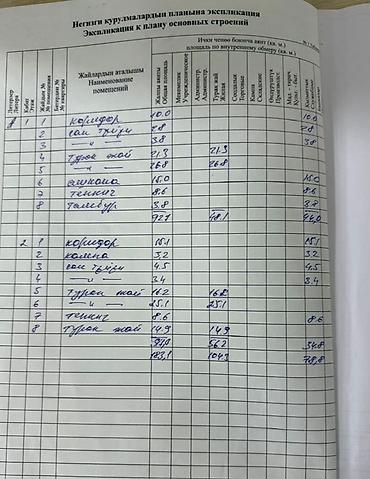 Негизги курулмалардын планына экспликация
Экспликация к плану основных строений
Литерлер
Литера
Кабат
Этаж
№ помещения
№ квартиры
Жайлардын аталышы
Наименование
помещений
Жалпы аянты
Общая площадь
Ички ченөө боюнча аянт (кв. м.)
площадь по внутреннему обмеру (кв. м.)
Учрежденческие
Администр.
Администр.
Турак жай
Жилая
Соодалык
Торговые
Кампа
Складские
Өндүрүштүк
Производст.
1 1 коридор 10.0 10.0
2 сан түйүн 2.8 2.8
3 —"— 3.8 3.8
4 турак жай 21.3 21.3
5 —"— 26.8 26.8
6 ашкана 15.0 15.0
7 8.6 8.6
8 тамбур 3.8 3.8
92.1 48.1 44.0
2 1 коридор 15.1 15.1
2 3.2 3.2
3 сан түйүн 4.5 4.5
4 —"— 3.4 3.4
5 турак жай 16.2 16.2
6 —"— 25.1 25.1
7 8.6 8.6
8 турак жай 14.9 14.9
56.2 34.8
183.1 104.3 78.8